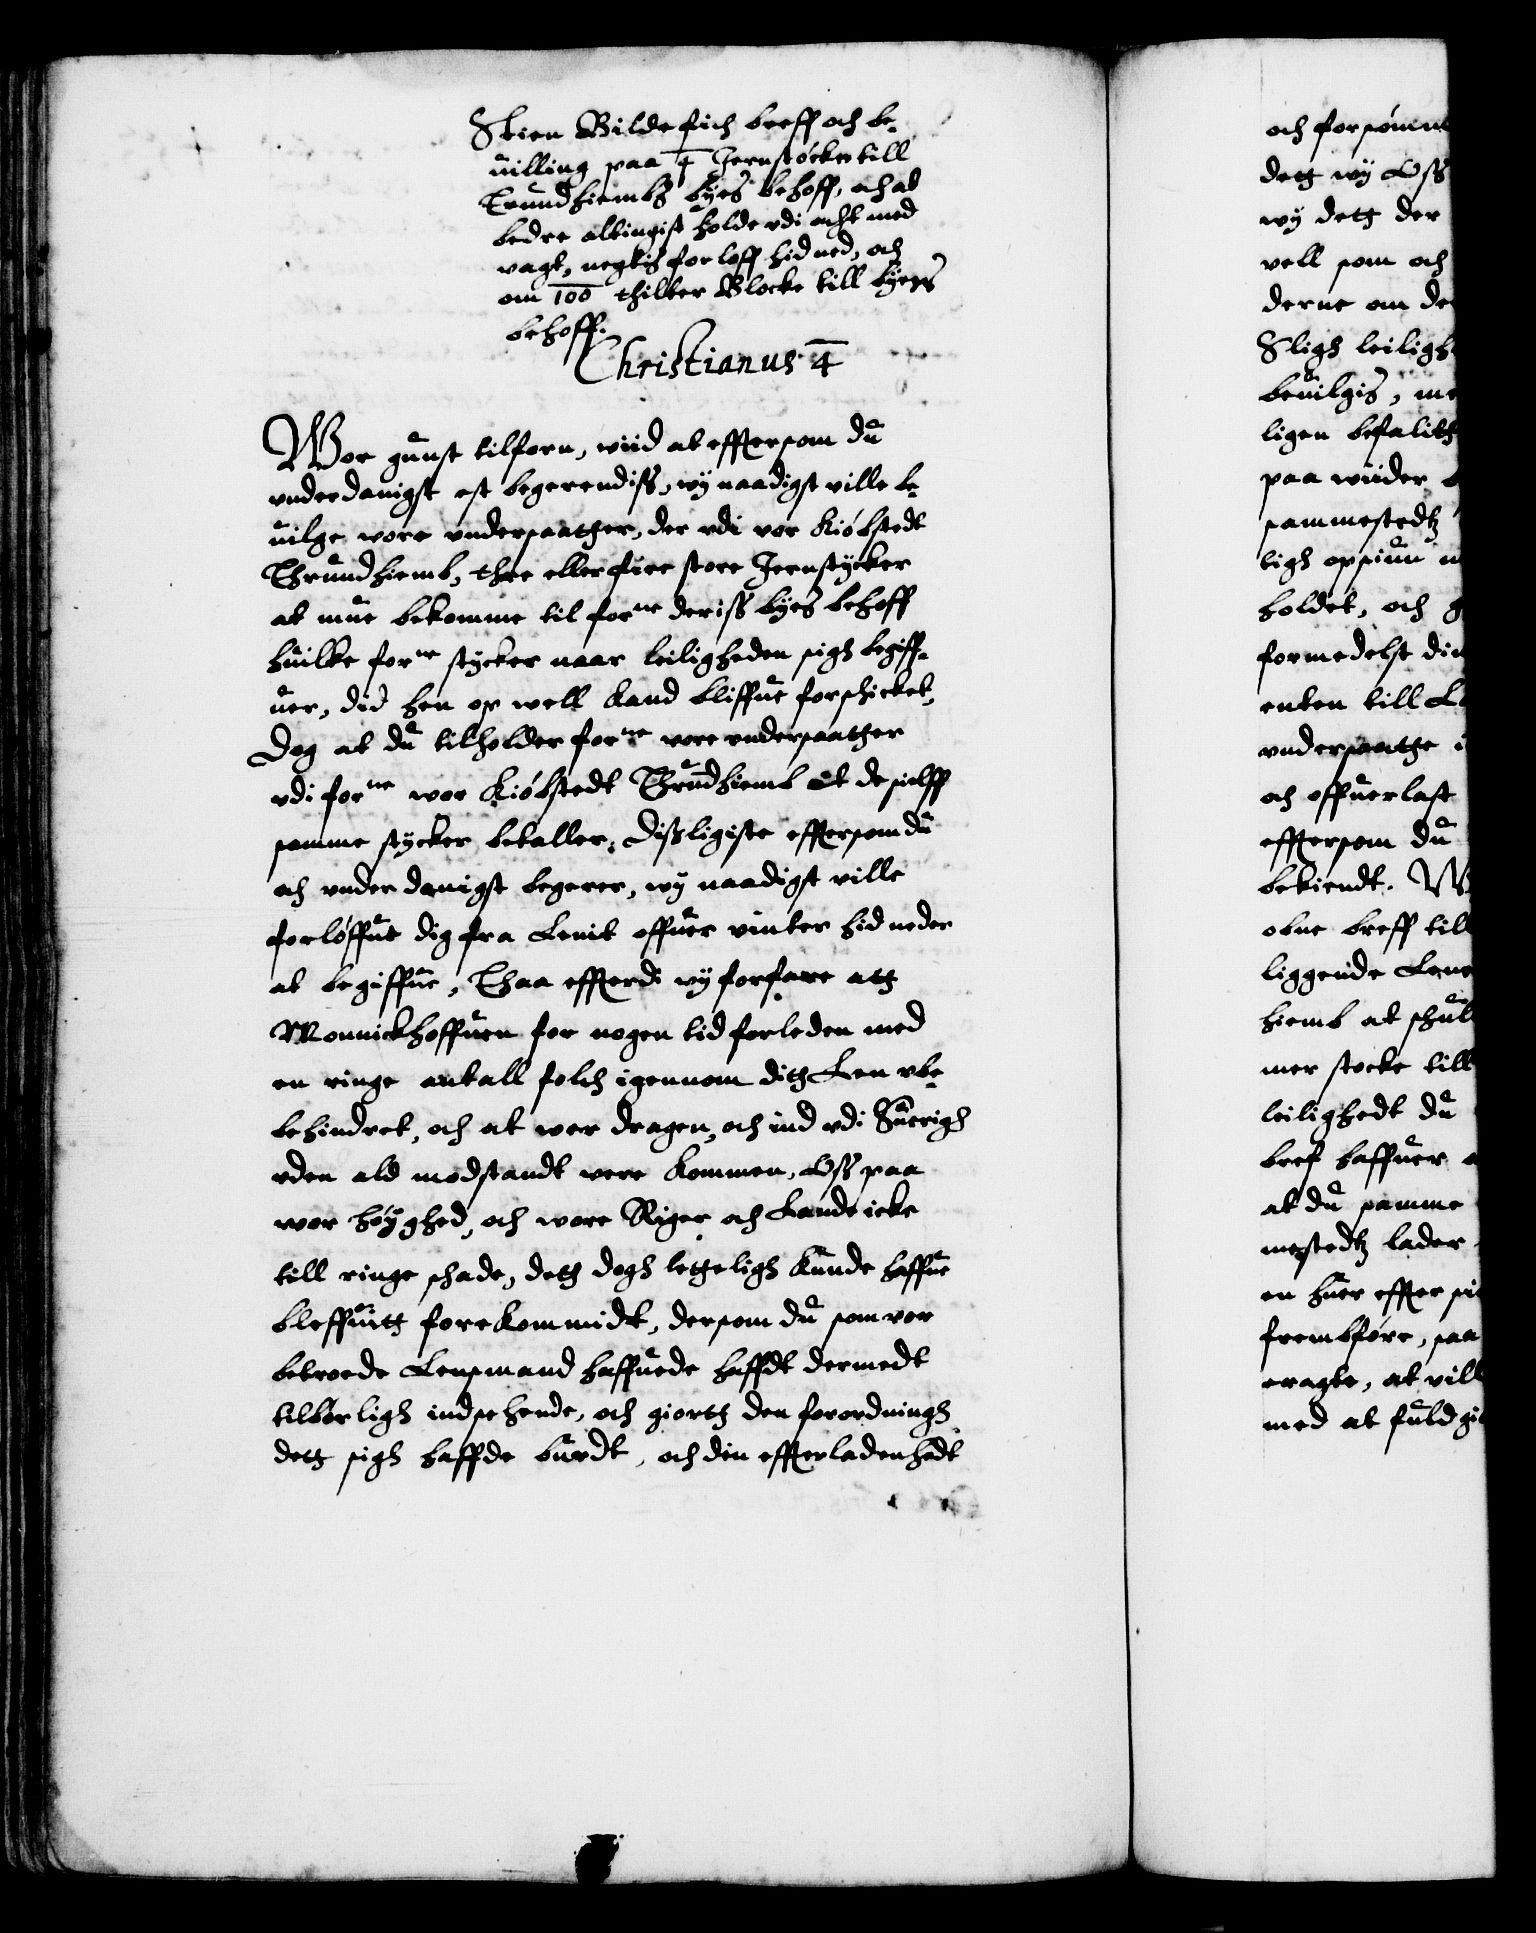 Stien Bilde fich breff och be-
uilling paa 4 Jernstöcker till
Trundhiembs byes behoff, och at
bedre altingist holde vdi acht med
vagt, negtis forloff hid ned, och
om 100 thilter Blocke till byens
behoff.
Christianus 4
Wor gunst tilforn, wiid at effttersom du
vnderdanigst est begerendiss, wy naadigst ville be-
uilge wore vndersaatther, der vdi vor Kiöbstedt
Thrundhiemb, thre eller fiire store Jernstycker
at mue bekomme til forne deriss byes behoff
huilke forne stycker naar leiligheden sigh begiff-
uer, did hen op well kand bliffue forschicket,
Dog at du tilholder forne vore vndersaather
vdi forne wor Kiöbstedt Thrundhiemb at de sielff
samme stycker betaller, Disligiste efftersom du
och vnderdanigst begerer, wy naadigst ville
forlöffue dig fra Lenit offuer vinter hid neder
at begiffue, Thaa effterdi wy forfare att
Monnickhoffuen for nogen tid forleden med
en ringe antall folch igennom dith Len vbe-
behindret, och at wer dragen, och ind vdi Suerrigh
vden ald modstandt vere kommen, Oss paa
wor höyghed, och wore Riger och Lande icke
till ringe schade, deth dogh letteligh kunde haffue
bleffuitt forekommidt, dersom du som vor
betroede Lensmand haffuede hafft dermedt
tilbörligh indseende, och giorth den forordningh
deth sigh haffde burdt, och din effterladenhedt
och forsömm
deth wy Oss
wy deth der
vell som och
derne om de
Sligh leiligh
beuilgis, me
ligen befalith
paa wiider
sammestedtz
ligh opsiun
holdet, och g
formedelst din
enten till L
vndersaathe
och offuerlast
efftersom du
bekiendt. W
obne breff till
liggende Lene
hiemb at schul
mer stocke till
leilighedt du
bref haffuer
at du samme
mestedtz lader
en huer effter si
frembföre, saa
eragte, at vill
med at fuldgi